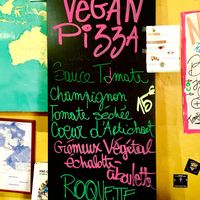 VEGAN
PIZZA
Sauce Tomate
Champignon
Tomate Séchée
Coeur d'Artichaut
Crémeux Végétal
échalote
ciboulette
ROQUETTE